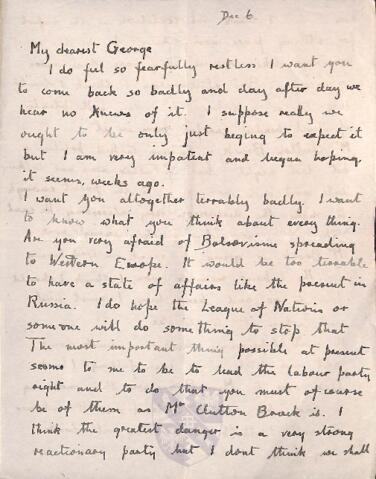 Dec 6.
My dearest George
I do feel so fearfully restless I want you
to come back so badly and day after day we
hear no knews of it. I suppose really we
ought to be only just beging to expect it
but I am very impatient and began hoping,
it seems, weeks ago.
I want you altogether terrably badly. I want
to know what you think about every thing.
Are you very afraid of Bolsovisme spreading
to Western Europe. It would be too terrable
to have a state of affairs like the present in
Russia. I do hope the League of Nations or
someone will do something to stop that
The most important thing possible at present
seems to me to be to lead the labour party
right and to do that you must of course
be of them as Mr Clutton Brock is. I
think the greatest danger is a very strong
reactionary party but I dont think we shall